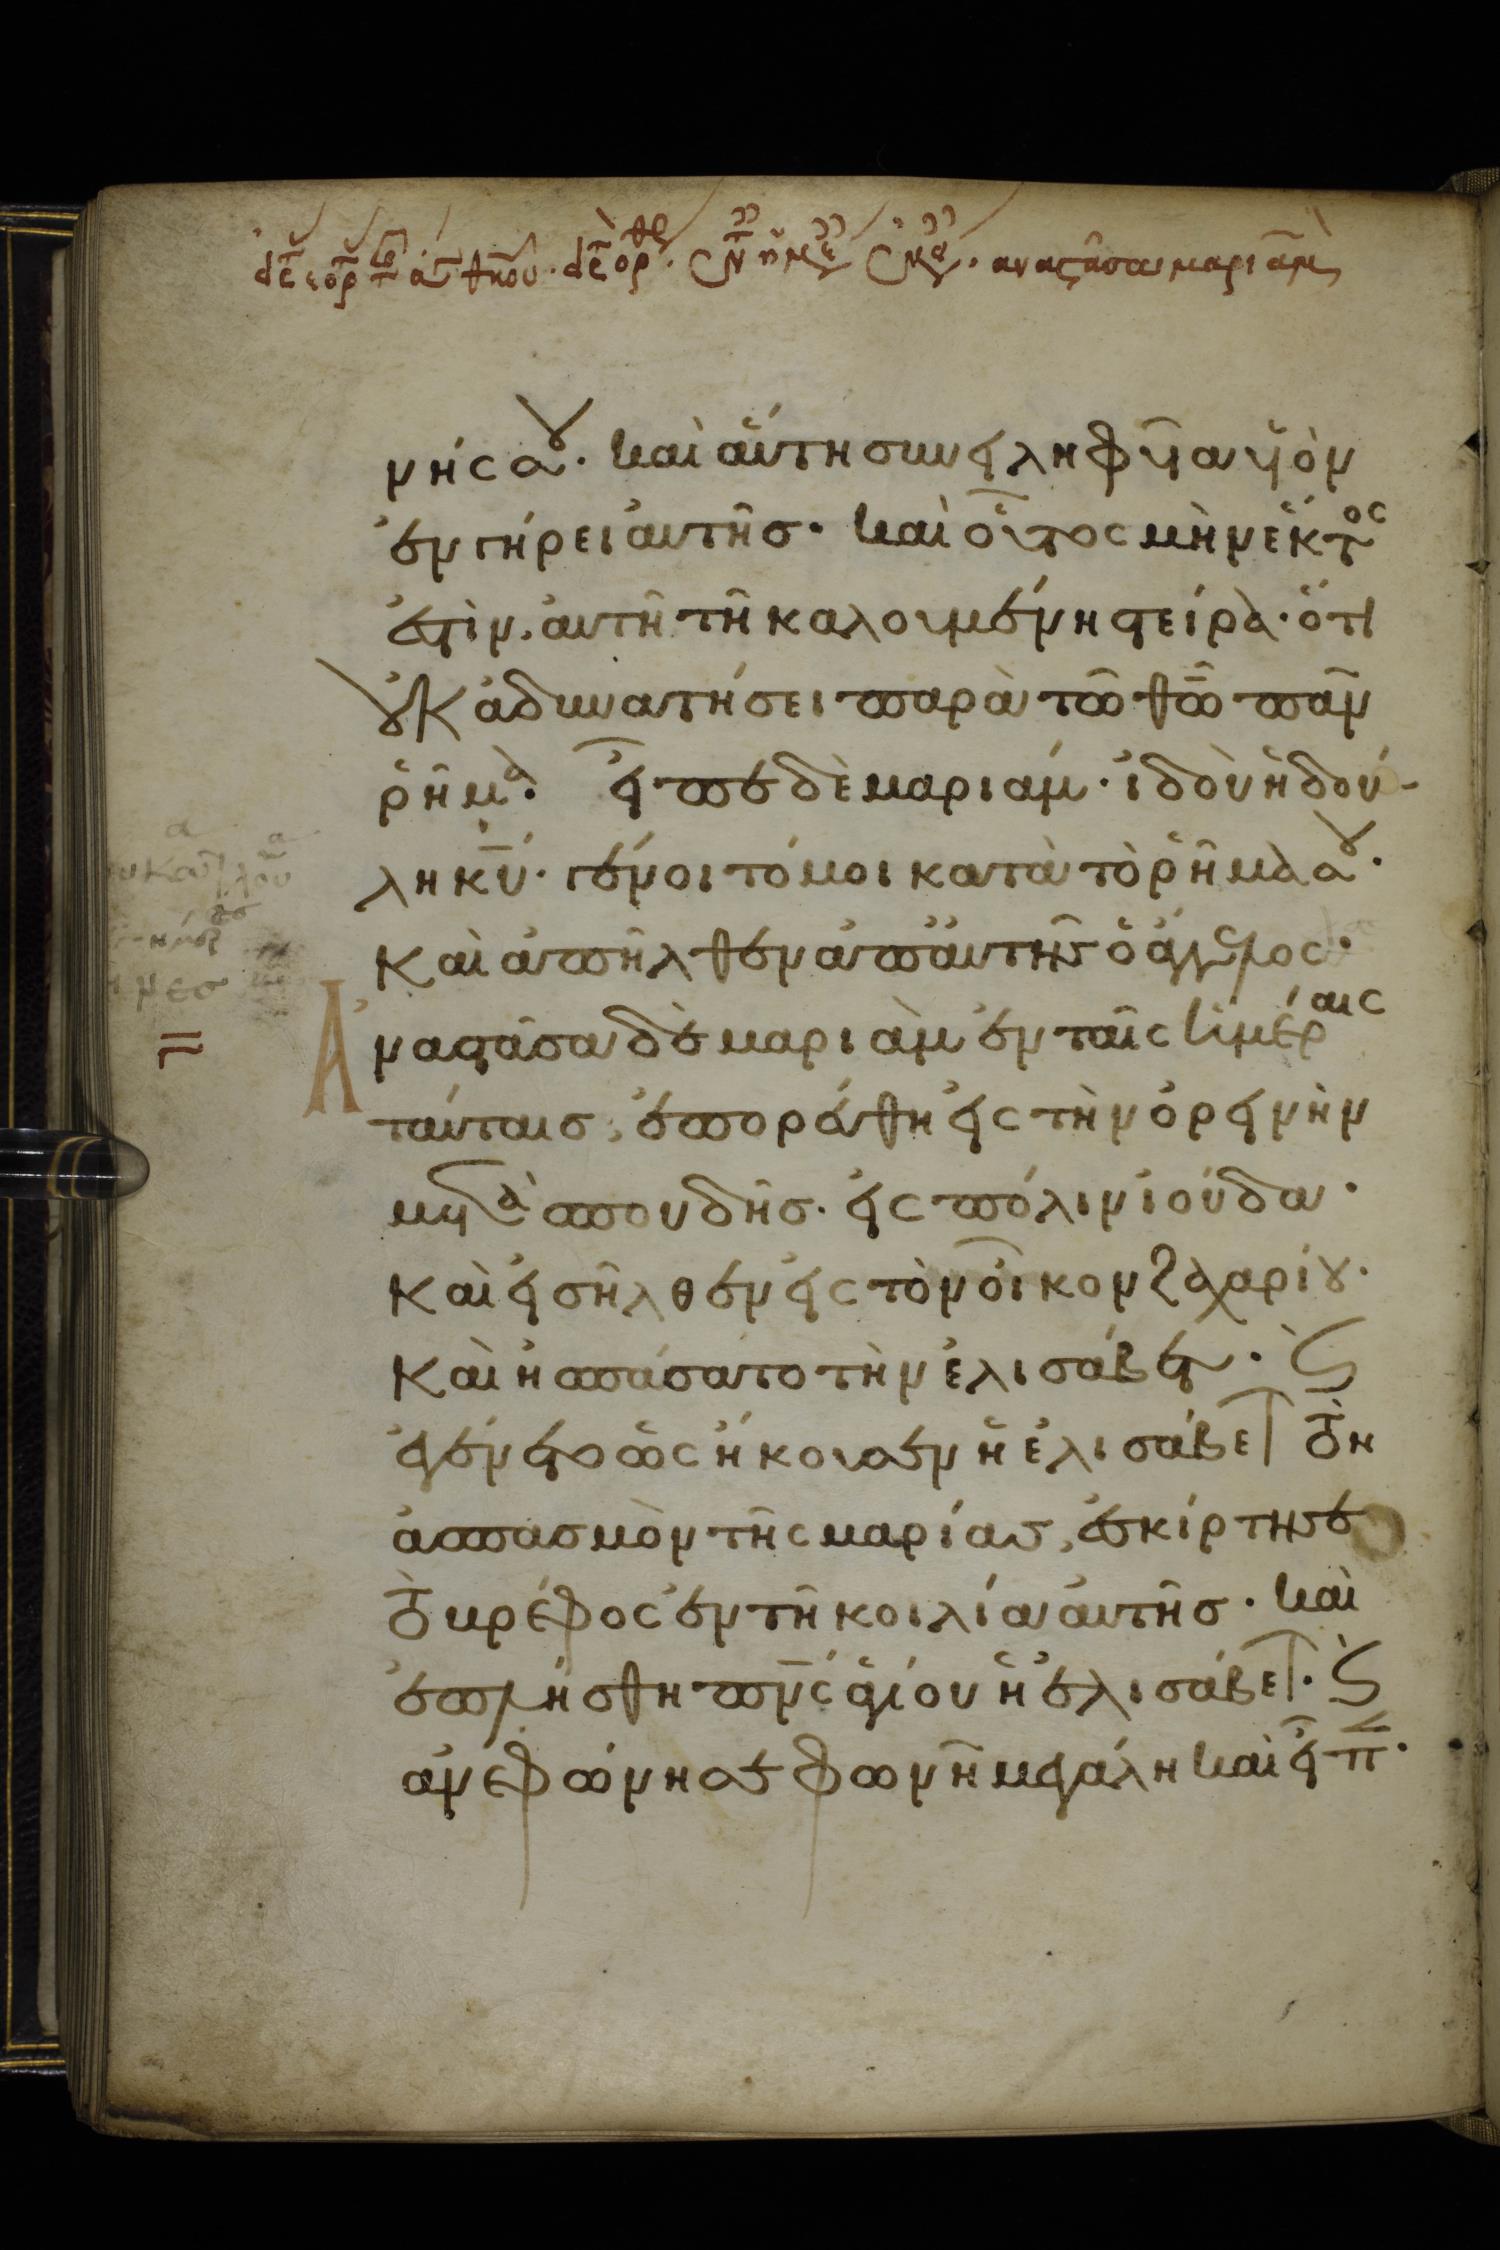 νής σου· καὶ αὕτη συνειληφυῖα υἱὸν
ἐν γήρει αὐτῆς· καὶ οὗτος μὴν ἕκτος
ἐστὶν, αὐτῆ τῆ καλουμένη στείρα· ὅτι
οὐκ ἀδυνατήσει παρὰ τῶ θῶ πᾶν
ῥῆμα· εἶπε δὲ μαριάμ· ἰδοὺ ἡ δού-
λη κυ· γένοιτό μοι κατὰ τὸ ῥῆμά σου·
καὶ ἀπῆλθεν ἀπ' αὐτῆς ὁ ἄγγελος·
Ἀναστᾶσα δὲ μαριὰμ ἐν ταῖς ἡμέραις
ταύταις, ἐπορεύθη εἰς τὴν ὀρεινὴν
μετὰ σπουδῆς· εἰς πόλιν ἰούδα·
καὶ εἰσῆλθεν εἰς τὸν οἶκον ζαχαρίου·
καὶ ἠσπάσατο τὴν ἐλισάβετ· ϛ
ἐγένετο ὡς ἤκουσεν ἡ ἐλισάβετ τὸν
ἀσπασμὸν τῆς μαρίας, ἐσκίρτησε
τὸ βρέφος ἐν τῆ κοιλία αὐτῆς· καὶ
ἐπλήσθη πνς ἁγίου ἡ ἐλισάβετ· ϛ
ἀνεφώνησε φωνῆ μεγάλη καὶ εἶπ·